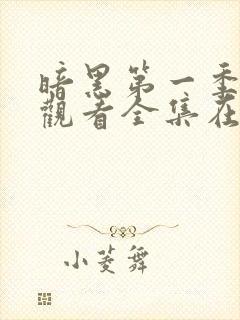 暗黑第一季
觀看全集在
小菱舞